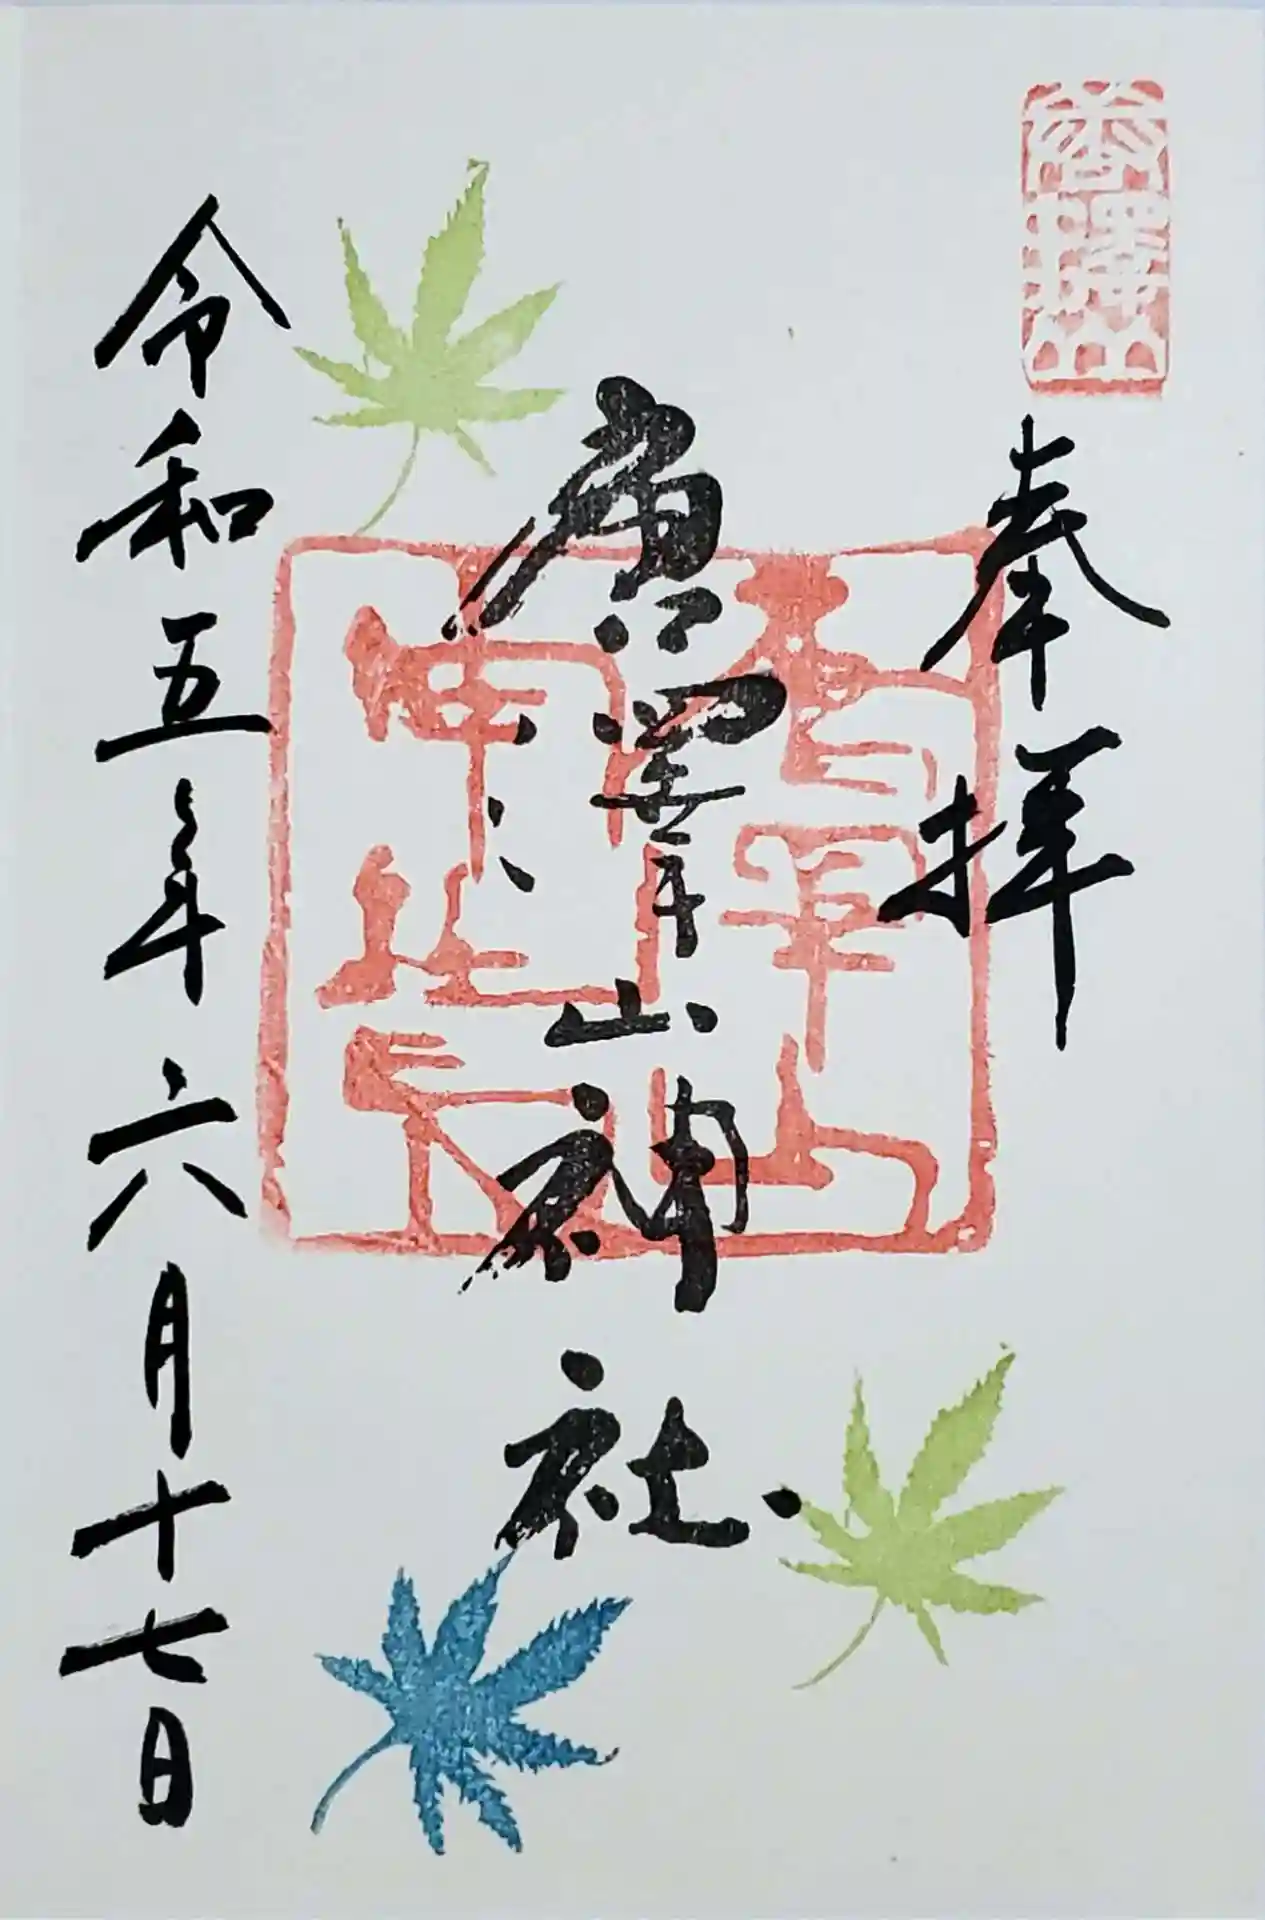 唐澤山
奉拝
唐澤山神社
令和五年六月十七日